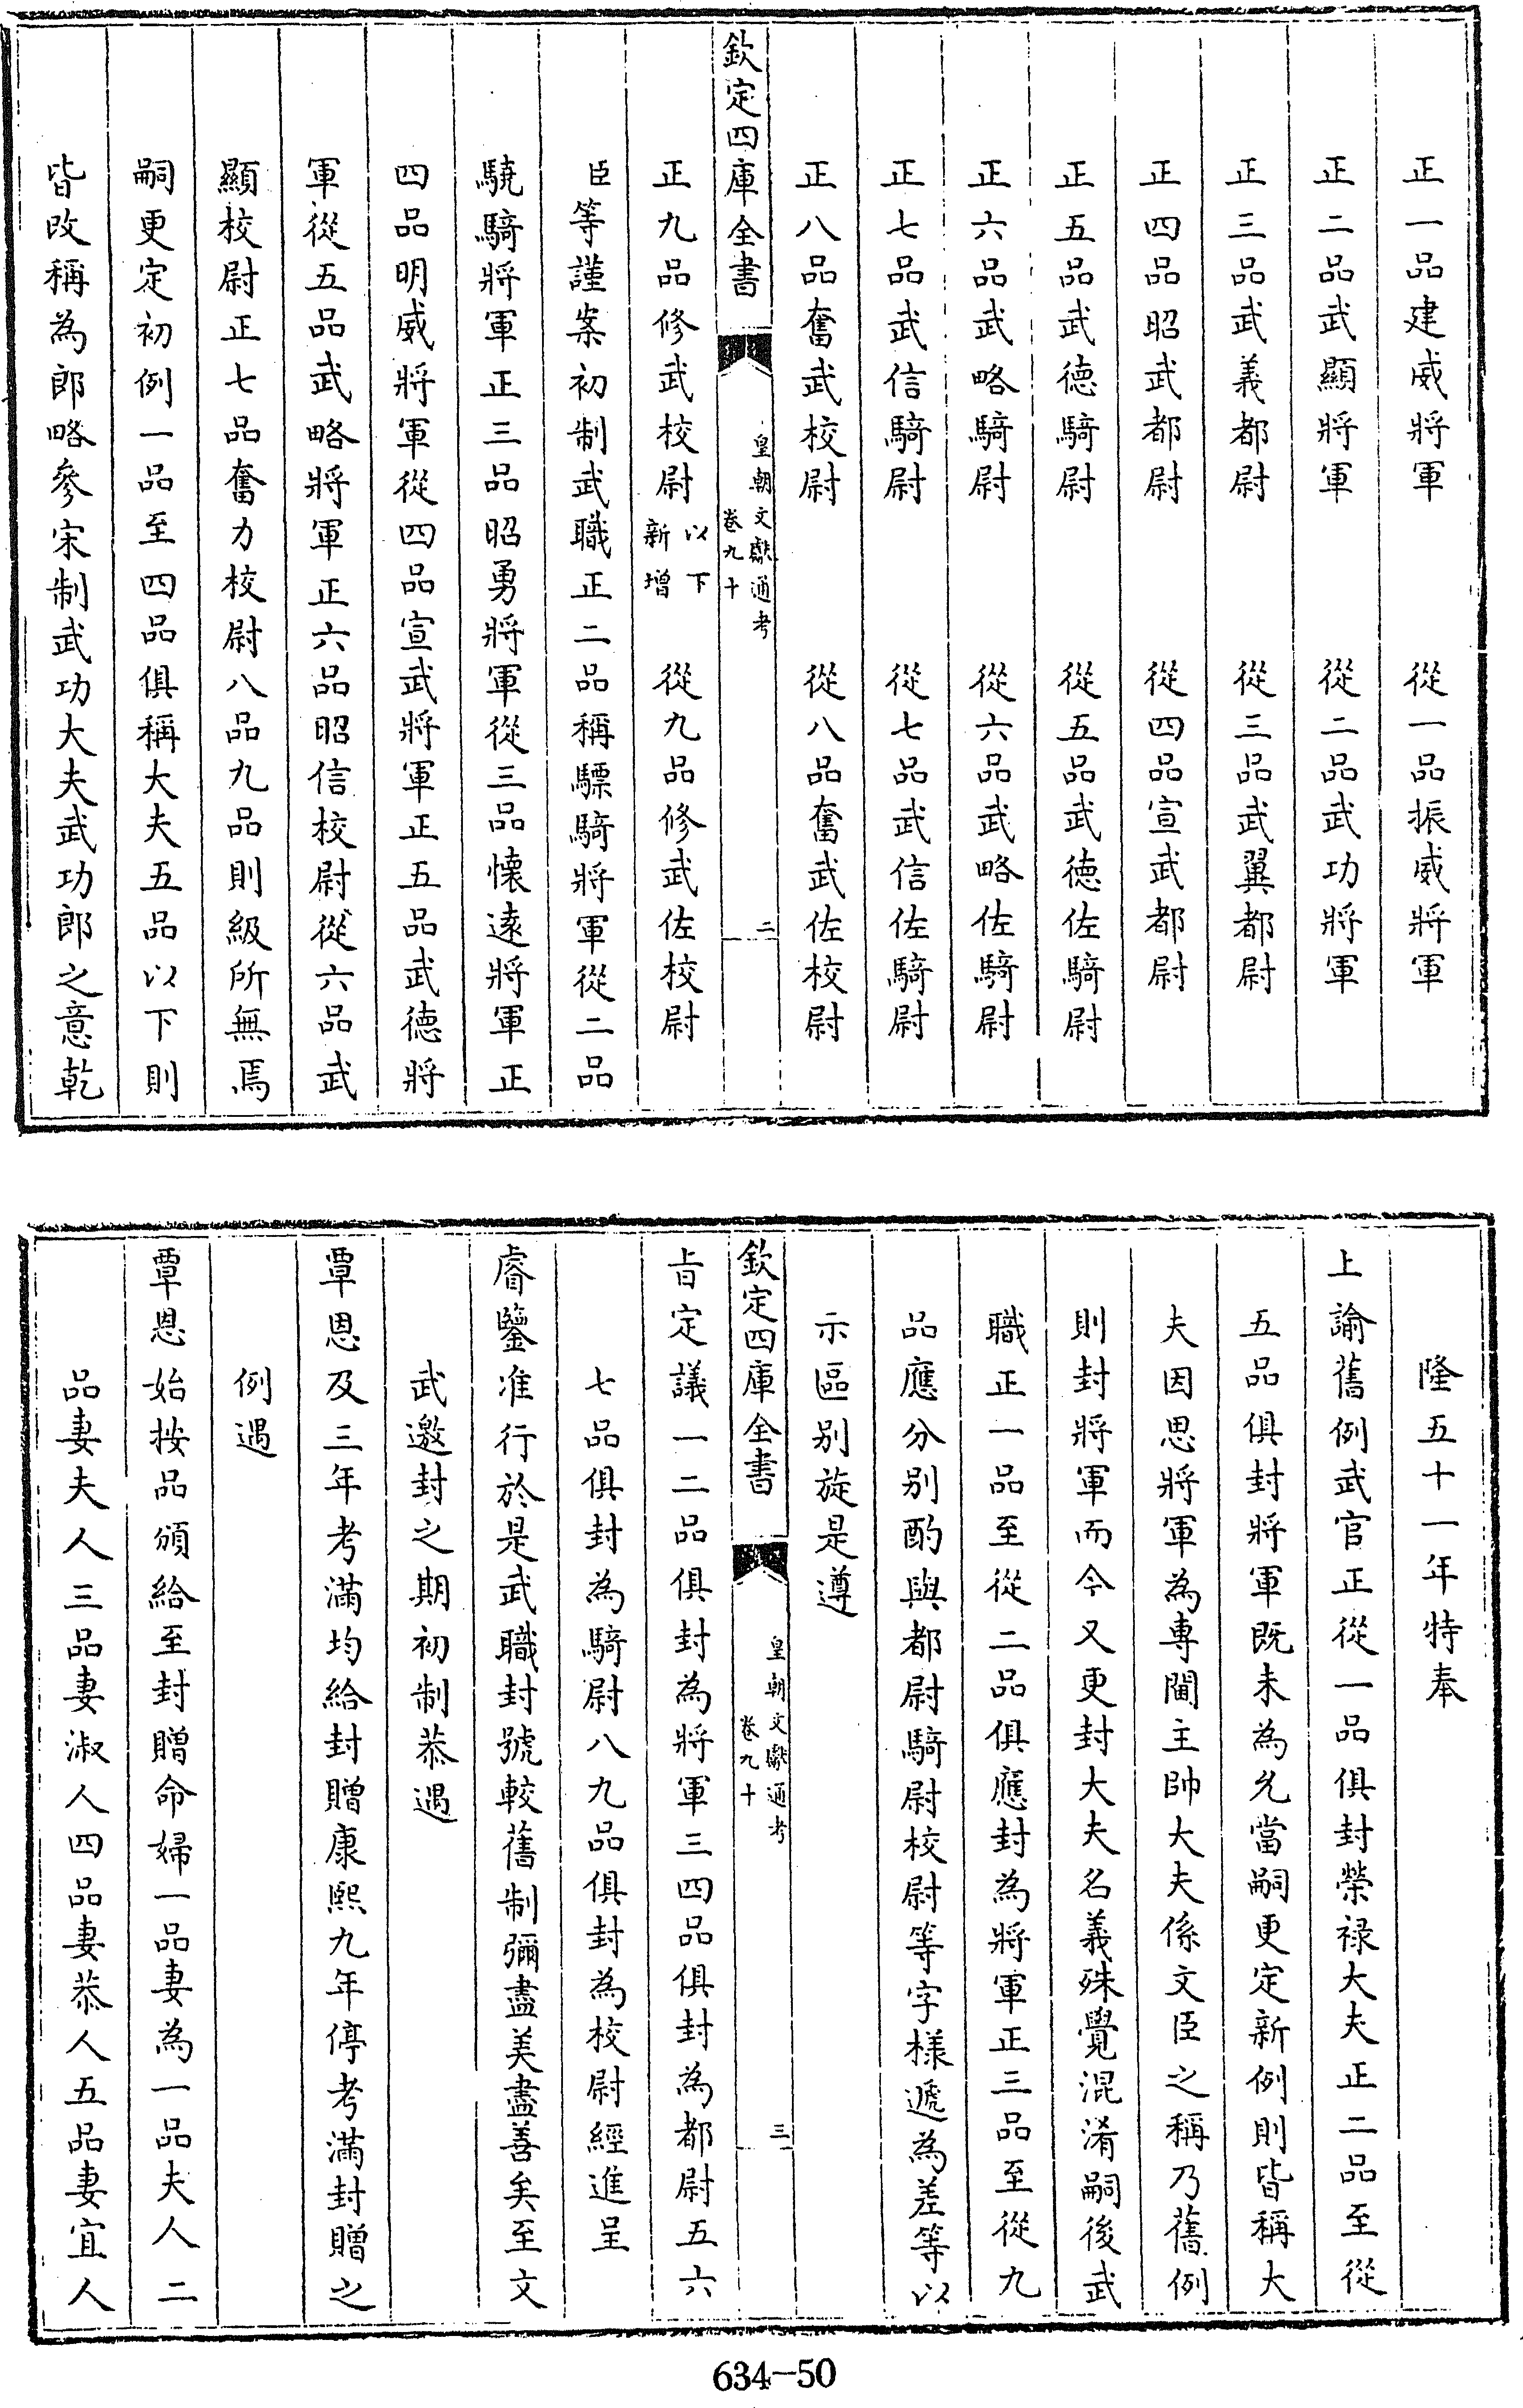 正一品建威將軍　從一品振威將軍
正二品武顯將軍　從二品武功將軍
正三品武義都尉　從三品武翼都尉
正四品昭武都尉　從四品宣武都尉
正五品武德騎尉　從五品武德佐騎尉
正六品武略騎尉　從六品武略佐騎尉
正七品武信騎尉　從七品武信佐騎尉
正八品奮武校尉　從八品奮武佐校尉
欽定四庫全書　皇朝文獻通考　卷九十　二
正九品修武校尉以下新增　從九品修武佐校尉
臣等謹案初制武職正二品稱驃騎將軍從二品
驍騎將軍正三品昭勇將軍從三品懷遠將軍正
四品明威將軍從四品宣武將軍正五品武德將
軍從五品武略將軍正六品昭信校尉從六品武
顯校尉正七品奮力校尉八品九品則級所無焉
嗣更定初例一品至四品俱稱大夫五品以下則
皆改稱為郎略參宋制武功大夫武功郎之意乾
隆五十一年特奉
上諭舊例武官正從一品俱封榮祿大夫正二品至從
五品俱封將軍既未為允當嗣更定新例則皆稱大
夫因思將軍為專閫主帥大夫係文臣之稱乃舊例
則封將軍而今又更封大夫名義殊覺混淆嗣後武
職正一品至從二品俱應封為將軍正三品至從九
品應分別酌與都尉騎尉校尉等字樣遞為差等以
示區别旋是遵
欽定四庫全書　皇朝文獻通考　卷九十　三
旨定議一二品俱封為將軍三四品俱封為都尉五六
七品俱封為騎尉八九品俱封為校尉經進呈
睿鑒准行於是武職封號較舊制彌盡美盡善矣至文
武邀封之期初制恭遇
覃恩及三年考滿均給封贈康熙九年停考滿封贈之
例遇
覃恩始按品頒給至封贈命婦一品妻為一品夫人二
品妻夫人三品妻淑人四品妻恭人五品妻宜人
634-50